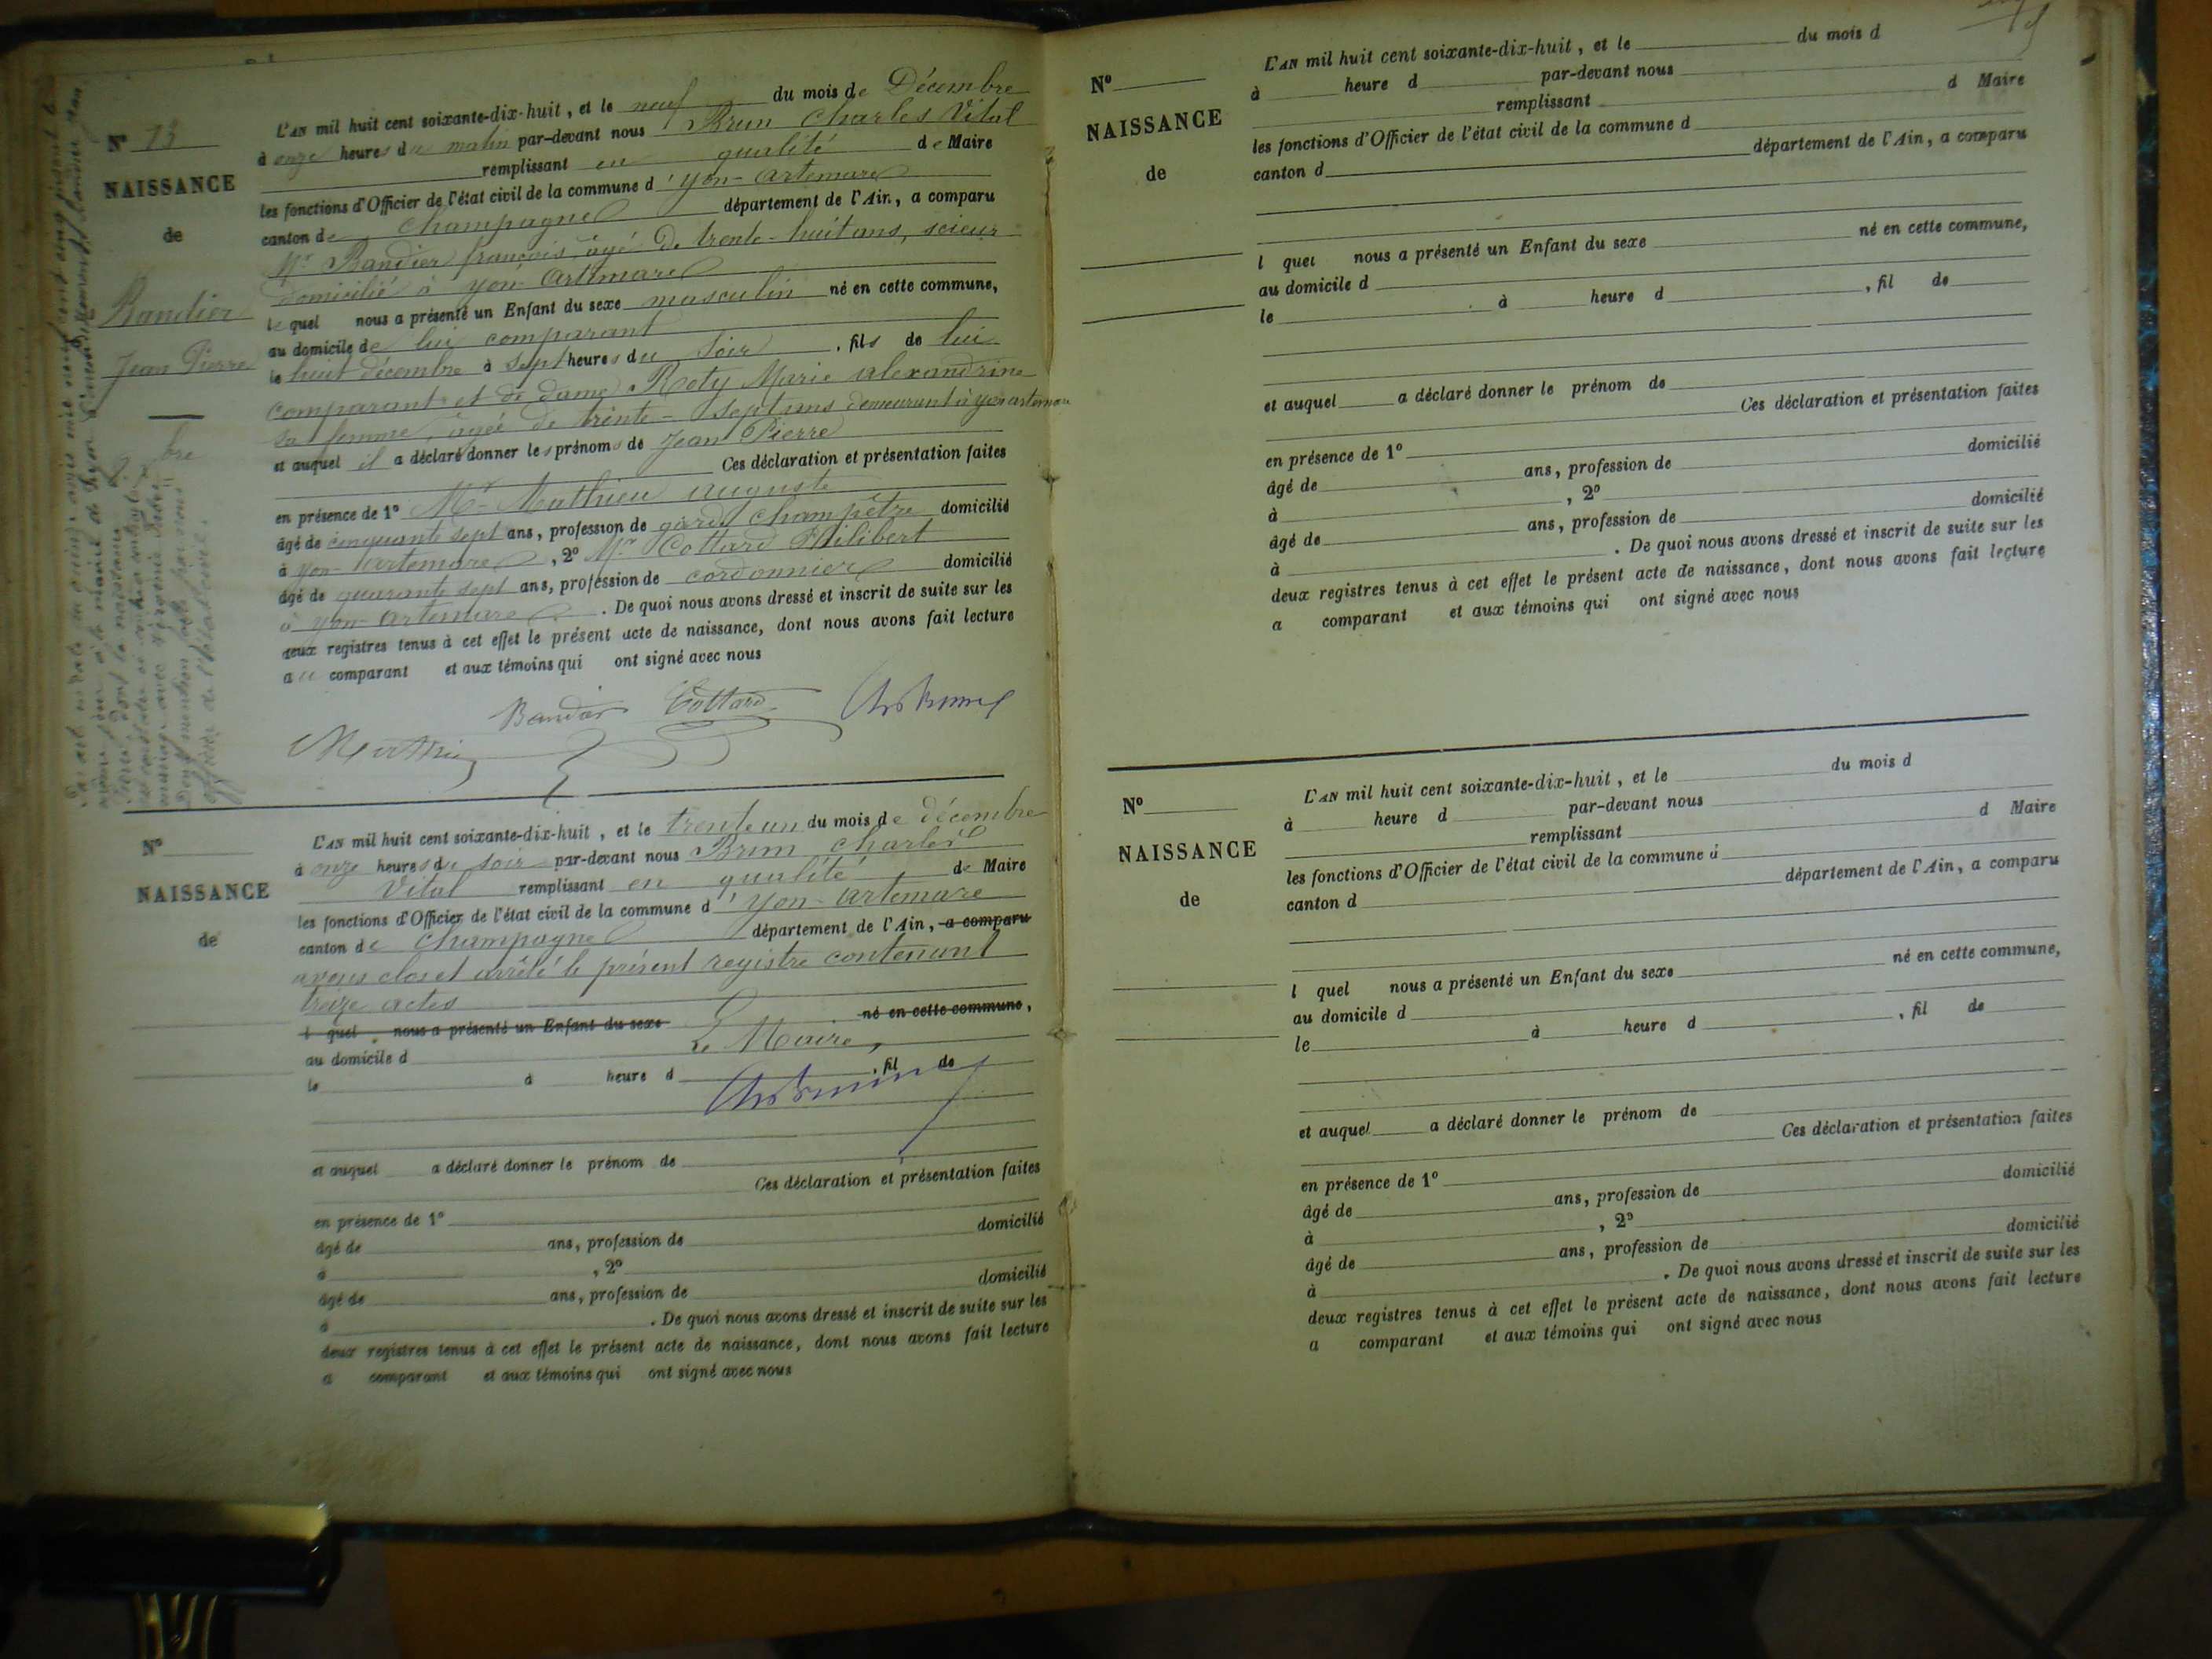 N° 13
NAISSANCE
de
Bandier
Jean Pierre
L'AN mil huit cent soixante-dix-huit, et le neuf du mois de Décembre
à onze heures du matin par-devant nous Brun Charles Vital
remplissant en qualité de Maire
les fonctions d'Officier de l'état civil de la commune d'yon-artemare
canton de Champagne département de l'Ain, a comparu
Mr Bandier françois âgé de trente-huit ans, scieur
domicilié à yon-artemare
lequel nous a présenté un Enfant du sexe masculin né en cette commune,
au domicile de lui comparant
le huit décembre à sept heures du soir, fils de lui
comparant et de dame Roty Marie alexandrine
sa femme, âgée de trente-sept ans demeurant à yon artemare
et auquel il a déclaré donner les prénoms de Jean Pierre
Ces déclaration et présentation faites
en présence de 1° Mr Mathieu auguste
âgé de cinquante sept ans, profession de garde champêtre domicilié
à yon-artemare, 2° Mr Cottard Philibert
âgé de quarante sept ans, profession de cordonnier domicilié
à yon-artemare. De quoi nous avons dressé et inscrit de suite sur les
deux registres tenus à cet effet le présent acte de naissance, dont nous avons fait lecture
au comparant et aux témoins qui ont signé avec nous
Bandier Cottard
Mathieu
N°
NAISSANCE
de
L'AN mil huit cent soixante-dix-huit, et le trente un du mois de décembre
à onze heures du soir par-devant nous Brun Charles
Vital remplissant en qualité de Maire
les fonctions d'Officier de l'état civil de la commune d'yon-artemare
canton de Champagne département de l'Ain, a comparu
avons clos et arrêté le présent registre contenant
treize actes
l quel nous a présenté un Enfant du sexe né en cette commune,
Le Maire,
au domicile d
le à heure d , fil de
et auquel a déclaré donner le prénom de
Ces déclaration et présentation faites
en présence de 1°
âgé de ans, profession de domicilié
à , 2°
âgé de ans, profession de domicilié
à . De quoi nous avons dressé et inscrit de suite sur les
deux registres tenus à cet effet le présent acte de naissance, dont nous avons fait lecture
a comparant et aux témoins qui ont signé avec nous
N°
NAISSANCE
de
L'AN mil huit cent soixante-dix-huit, et le du mois d
à heure d par-devant nous
remplissant d Maire
les fonctions d'Officier de l'état civil de la commune d
canton d département de l'Ain, a comparu
l quel nous a présenté un Enfant du sexe né en cette commune,
au domicile d
le à heure d , fil de
et auquel a déclaré donner le prénom de
Ces déclaration et présentation faites
en présence de 1°
âgé de ans, profession de domicilié
à , 2°
âgé de ans, profession de domicilié
à . De quoi nous avons dressé et inscrit de suite sur les
deux registres tenus à cet effet le présent acte de naissance, dont nous avons fait lecture
a comparant et aux témoins qui ont signé avec nous
N°
NAISSANCE
de
L'AN mil huit cent soixante-dix-huit, et le du mois d
à heure d par-devant nous
remplissant d Maire
les fonctions d'Officier de l'état civil de la commune d
canton d département de l'Ain, a comparu
l quel nous a présenté un Enfant du sexe né en cette commune,
au domicile d
le à heure d , fil de
et auquel a déclaré donner le prénom de
Ces déclaration et présentation faites
en présence de 1°
âgé de ans, profession de domicilié
à , 2°
âgé de ans, profession de domicilié
à . De quoi nous avons dressé et inscrit de suite sur les
deux registres tenus à cet effet le présent acte de naissance, dont nous avons fait lecture
a comparant et aux témoins qui ont signé avec nous